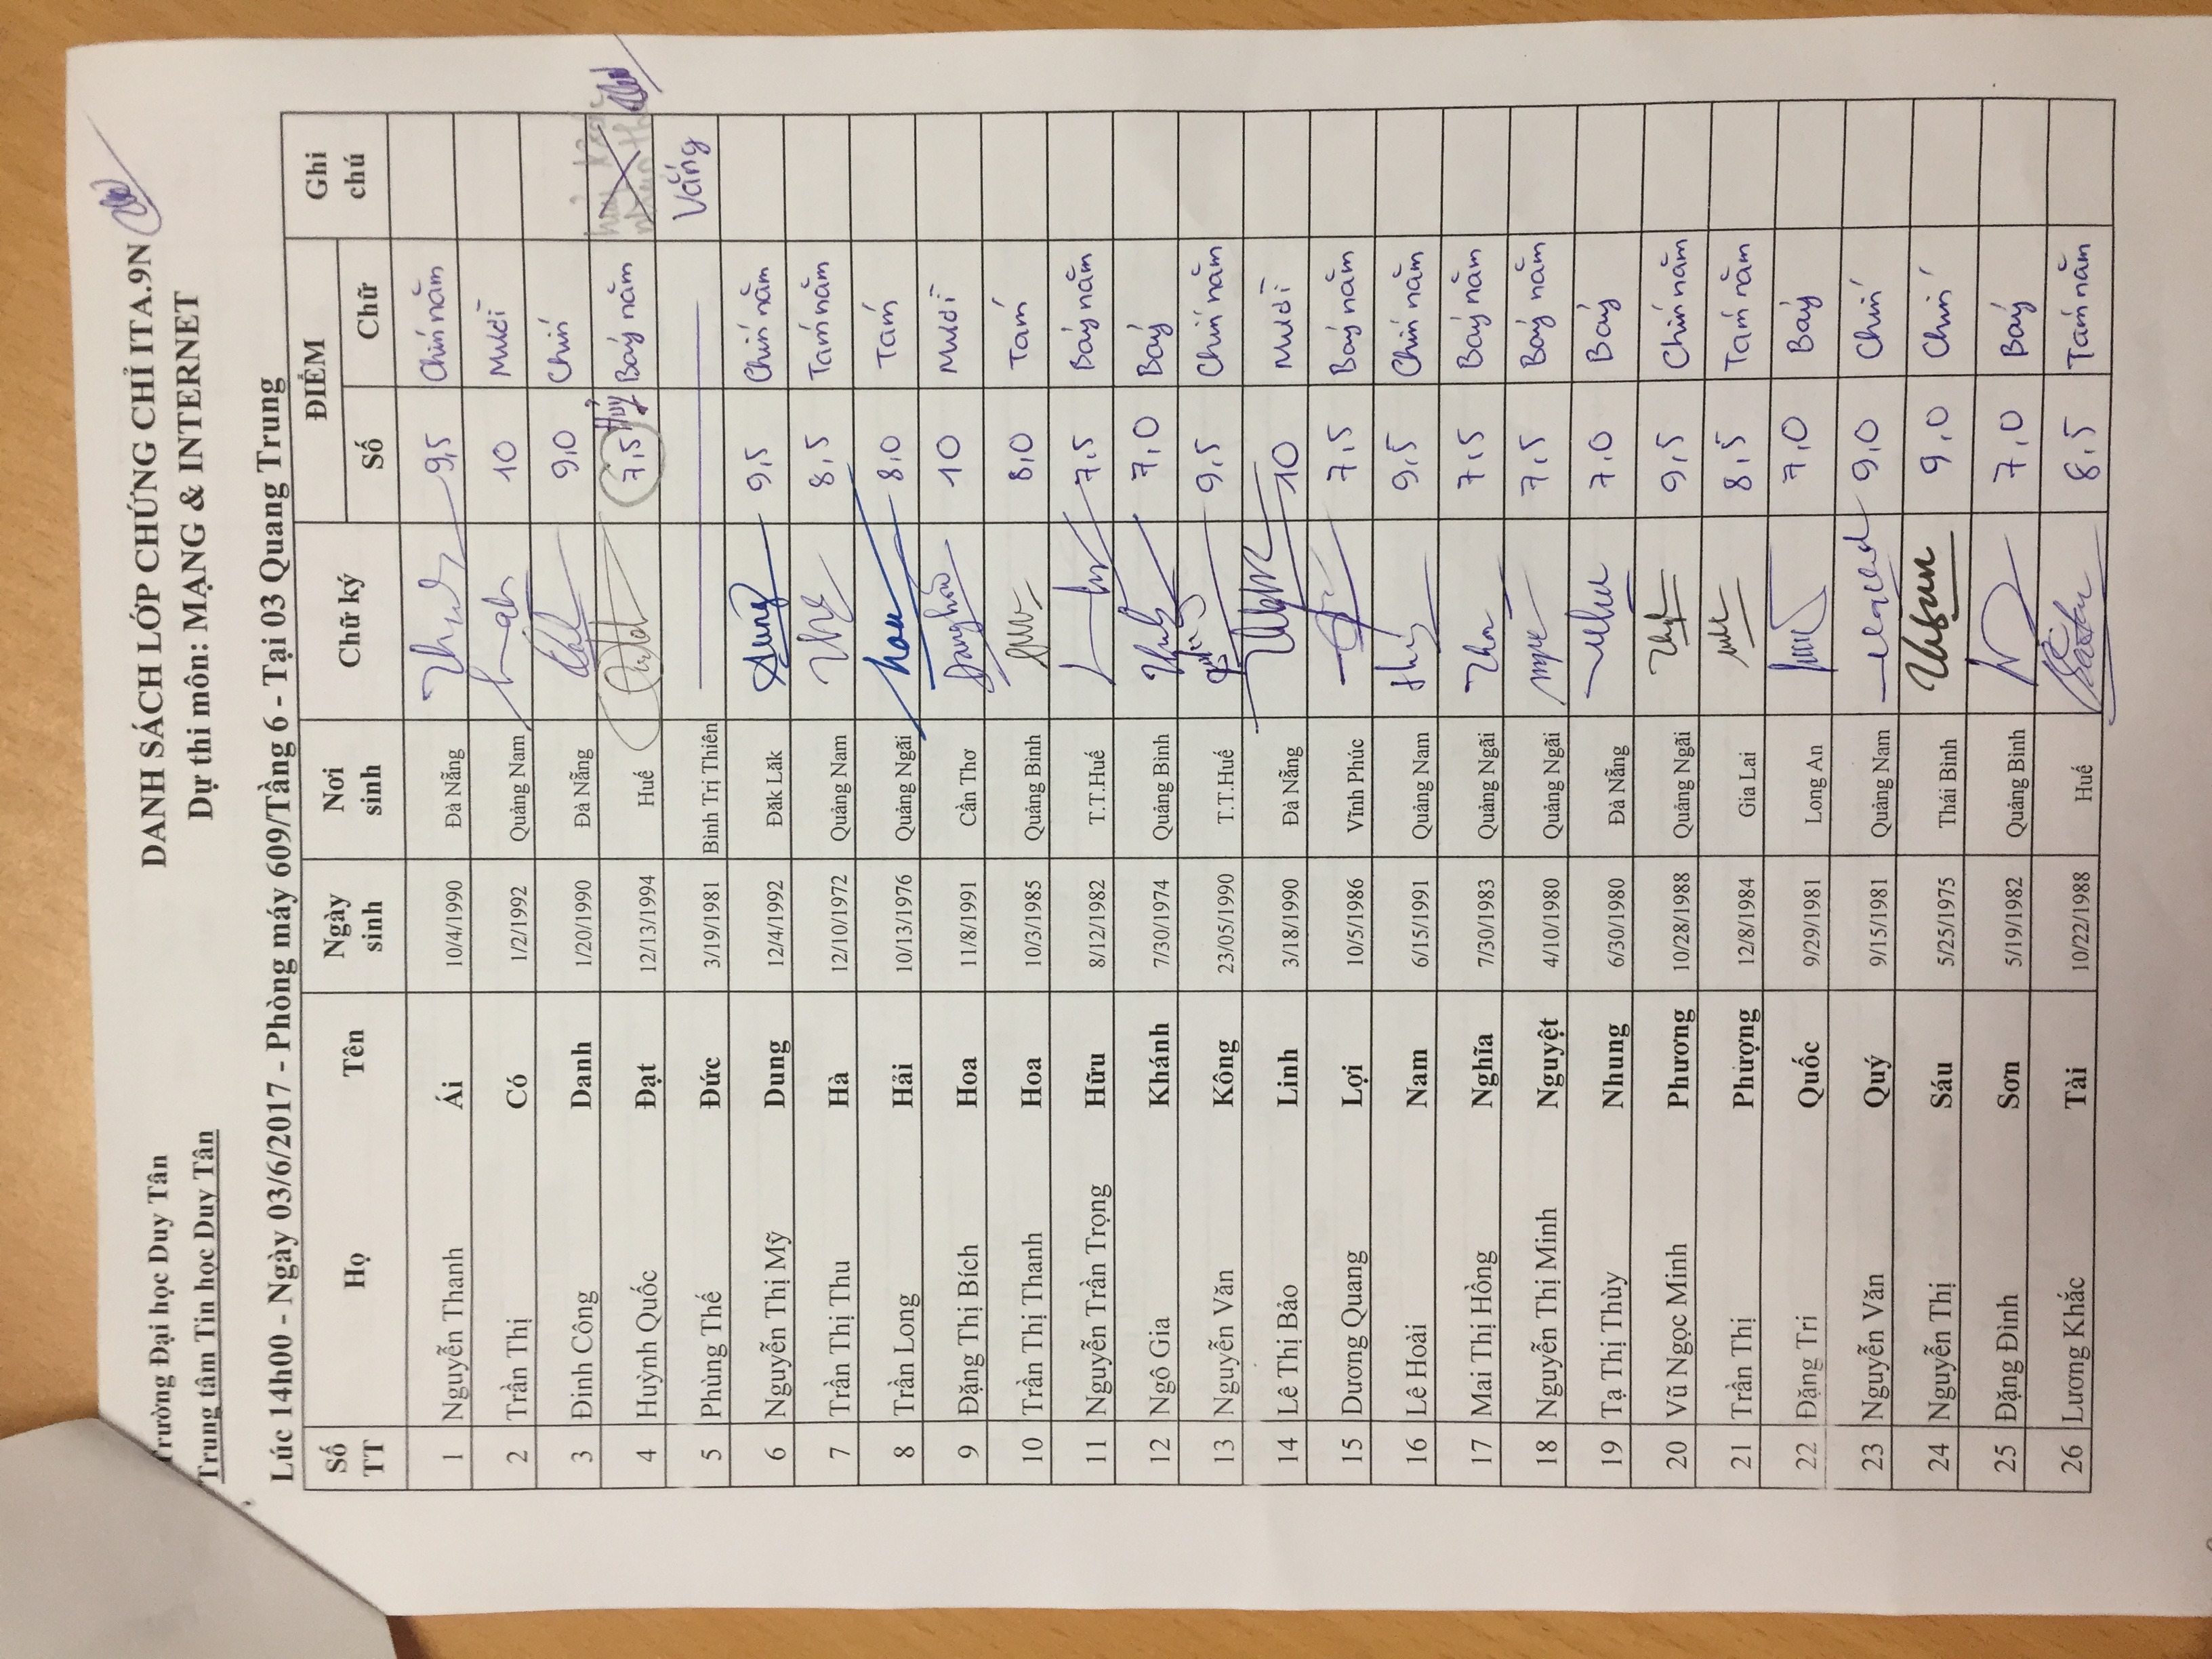 Trường Đại học Duy Tân
Trung tâm Tin học Duy Tân
DANH SÁCH LỚP CHỨNG CHỈ ITA.9N
Dự thi môn: MẠNG & INTERNET
Lúc 14h00 - Ngày 03/6/2017 - Phòng máy 609/Tầng 6 - Tại 03 Quang Trung
Số TT Họ Tên Ngày sinh Nơi sinh Chữ ký ĐIỂM Ghi chú
Số Chữ
1 Nguyễn Thanh Ái 10/4/1990 Đà Nẵng 9,5 Chín năm
2 Trần Thị Có 1/2/1992 Quảng Nam 10 Mười
3 Đinh Công Danh 1/20/1990 Đà Nẵng 9,0 Chín
4 Huỳnh Quốc Đạt 12/13/1994 Huế 7,5 Hủy Bảy năm
5 Phùng Thế Đức 3/19/1981 Bình Trị Thiên Vắng
6 Nguyễn Thị Mỹ Dung 12/4/1992 Đăk Lăk Dung 9,5 Chín năm
7 Trần Thị Thu Hà 12/10/1972 Quảng Nam 8,5 Tám năm
8 Trần Long Hải 10/13/1976 Quảng Ngãi 8,0 Tám
9 Đặng Thị Bích Hoa 11/8/1991 Cần Thơ 10 Mười
10 Trần Thị Thanh Hoa 10/3/1985 Quảng Bình 8,0 Tám
11 Nguyễn Trần Trọng Hữu 8/12/1982 T.T.Huế 7,5 Bảy năm
12 Ngô Gia Khánh 7/30/1974 Quảng Bình 7,0 Bảy
13 Nguyễn Văn Kông 23/05/1990 T.T.Huế 9,5 Chín năm
14 Lê Thị Bảo Linh 3/18/1990 Đà Nẵng 10 Mười
15 Dương Quang Lợi 10/5/1986 Vĩnh Phúc 7,5 Bảy năm
16 Lê Hoài Nam 6/15/1991 Quảng Nam 9,5 Chín năm
17 Mai Thị Hồng Nghĩa 7/30/1983 Quảng Ngãi 7,5 Bảy năm
18 Nguyễn Thị Minh Nguyệt 4/10/1980 Quảng Ngãi 7,5 Bảy năm
19 Tạ Thị Thùy Nhung 6/30/1980 Đà Nẵng 7,0 Bảy
20 Vũ Ngọc Minh Phương 10/28/1988 Quảng Ngãi 9,5 Chín năm
21 Trần Thị Phượng 12/8/1984 Gia Lai 8,5 Tám năm
22 Đặng Tri Quốc 9/29/1981 Long An 7,0 Bảy
23 Nguyễn Văn Quý 9/15/1981 Quảng Nam 9,0 Chín
24 Nguyễn Thị Sáu 5/25/1975 Thái Bình 9,0 Chín
25 Đặng Đình Sơn 5/19/1982 Quảng Bình 7,0 Bảy
26 Lương Khắc Tài 10/22/1988 Huế 8,5 Tám năm